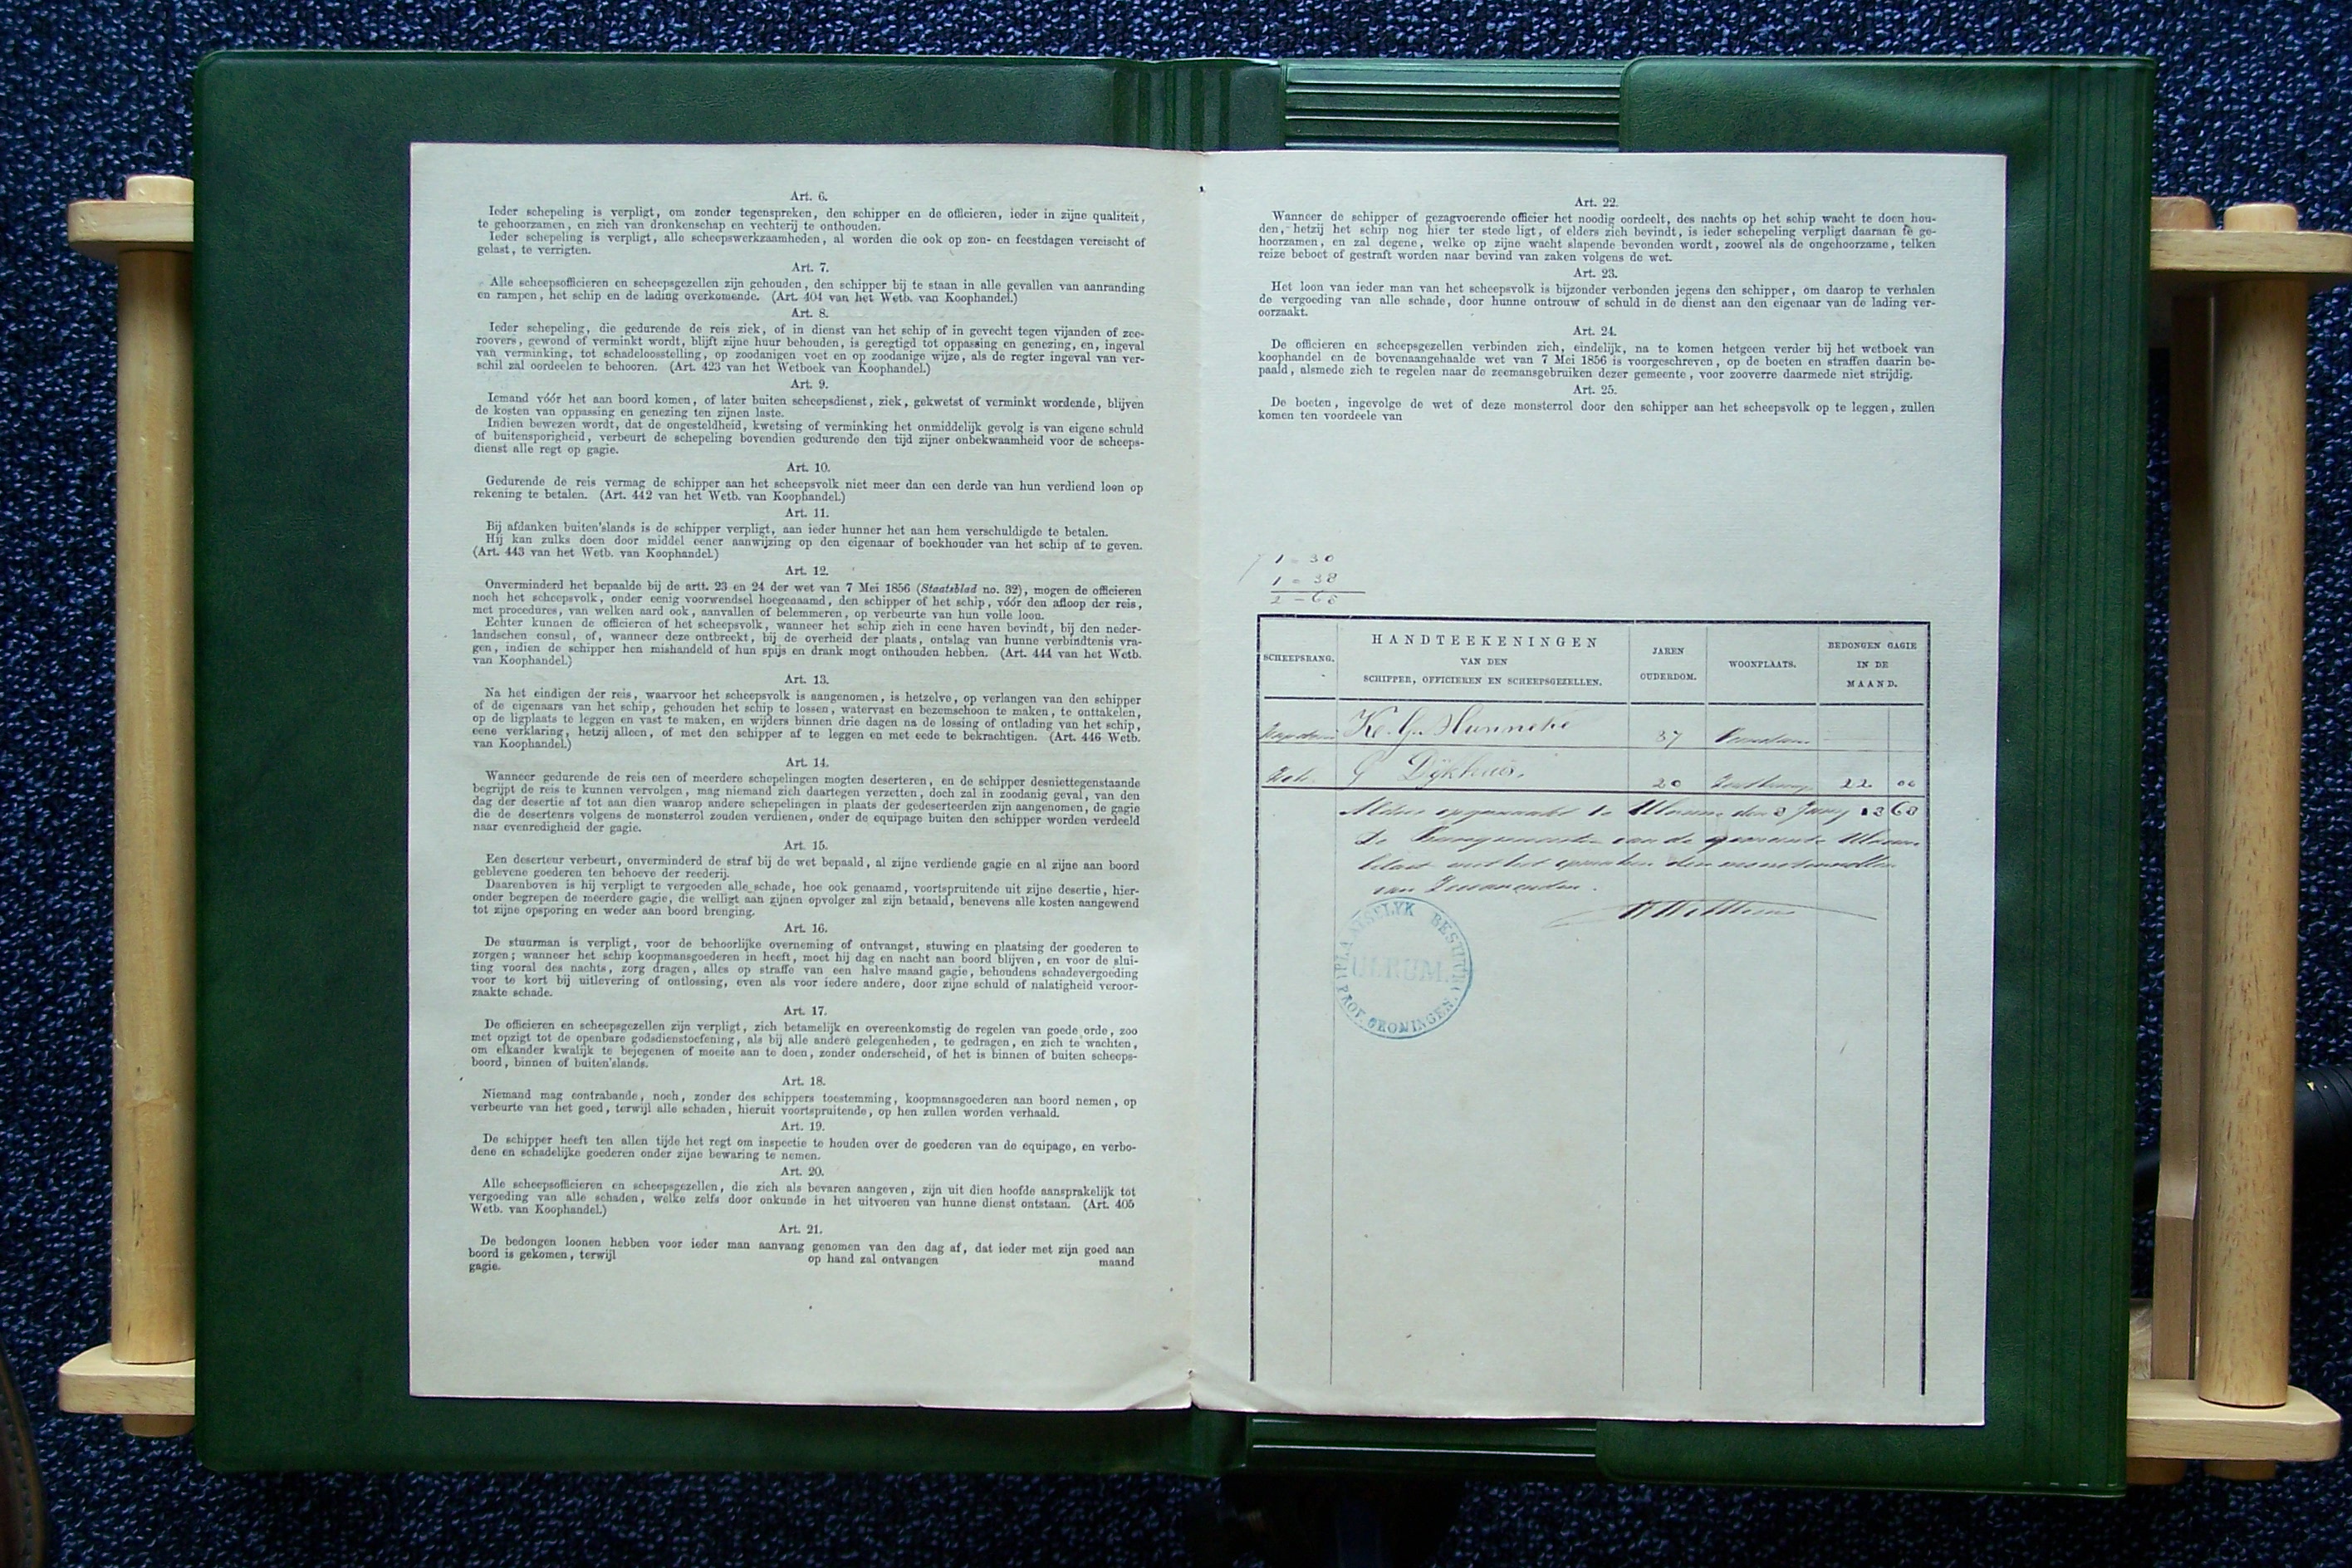 Art. 6.
Ieder schepeling is verpligt, om zonder tegenspreken, den schipper en de officieren, ieder in zijne qualiteit,
te gehoorzamen, en zich van dronkenschap en vechterij te onthouden.
Ieder schepeling is verpligt, alle scheepswerkzaamheden, al worden die ook op zon- en feestdagen vereischt of
gelast, te verrigten.
Art. 7.
Alle scheepsofficieren en scheepsgezellen zijn gehouden, den schipper bij te staan in alle gevallen van aanranding
en rampen, het schip en de lading overkomende. (Art. 404 van het Wetb. van Koophandel.)
Art. 8.
Ieder schepeling, die gedurende de reis ziek, of in dienst van het schip of in gevecht tegen vijanden of zee-
roovers, gewond of verminkt wordt, blijft zijne huur behouden, is geregtigd tot oppassing en genezing, en, ingeval
van verminking, tot schadeloosstelling, op zoodanigen voet en op zoodanige wijze, als de regter ingeval van ver-
schil zal oordeelen te behooren. (Art. 423 van het Wetboek van Koophandel.)
Art. 9.
Iemand vóór het aan boord komen, of later buiten scheepsdienst, ziek, gekwetst of verminkt wordende, blijven
de kosten van oppassing en genezing ten zijnen laste.
Indien bewezen wordt, dat de ongesteldheid, kwetsing of verminking het onmiddelijk gevolg is van eigene schuld
of buitensporigheid, verbeurt de schepeling bovendien gedurende den tijd zijner onbekwaamheid voor de scheeps-
dienst alle regt op gagie.
Art. 10.
Gedurende de reis vermag de schipper aan het scheepsvolk niet meer dan een derde van hun verdiend loon op
rekening te betalen. (Art. 442 van het Wetb. van Koophandel.)
Art. 11.
Bij afdanken buiten'slands is de schipper verpligt, aan ieder hunner het aan hem verschuldigde te betalen.
Hij kan zulks doen door middel eener aanwijzing op den eigenaar of boekhouder van het schip af te geven.
(Art. 443 van het Wetb. van Koophandel.)
Art. 12.
Onverminderd het bepaalde bij de artt. 23 en 24 der wet van 7 Mei 1856 (Staatsblad no. 32), mogen de officieren
noch het scheepsvolk, onder eenig voorwendsel hoegenaamd, den schipper of het schip, vóór den afloop der reis,
met procedures, van welken aard ook, aanvallen of belemmeren, op verbeurte van hun volle loon.
Echter kunnen de officieren of het scheepsvolk, wanneer het schip zich in eene haven bevindt, bij den neder-
landschen consul, of, wanneer deze ontbreekt, bij de overheid der plaats, ontslag van hunne verbindtenis vra-
gen, indien de schipper hen mishandeld of hun spijs en drank mogt onthouden hebben. (Art. 444 van het Wetb.
van Koophandel.)
Art. 13.
Na het eindigen der reis, waarvoor het scheepsvolk is aangenomen, is hetzelve, op verlangen van den schipper
of de eigenaars van het schip, gehouden het schip te lossen, watervast en bezemschoon te maken, te onttakelen,
op de ligplaats te leggen en vast te maken, en wijders binnen drie dagen na de lossing of ontlading van het schip,
eene verklaring, hetzij alleen, of met den schipper af te leggen en met eede te bekrachtigen. (Art. 446 Wetb.
van Koophandel.)
Art. 14.
Wanneer gedurende de reis een of meerdere schepelingen mogten deserteren, en de schipper desniettegenstaande
begrijpt de reis te kunnen vervolgen, mag niemand zich daartegen verzetten, doch zal in zoodanig geval, van den
dag der desertie af tot aan dien waarop andere schepelingen in plaats der gedeserteerden zijn aangenomen, de gagie
die de deserteurs volgens de monsterrol zouden verdienen, onder de equipage buiten den schipper worden verdeeld
naar evenredigheid der gagie.
Art. 15.
Een deserteur verbeurt, onverminderd de straf bij de wet bepaald, al zijne verdiende gagie en al zijne aan boord
geblevene goederen ten behoeve der reederij.
Daarenboven is hij verpligt te vergoeden alle schade, hoe ook genaamd, voortspruitende uit zijne desertie, hier-
onder begrepen de meerdere gagie, die welligt aan zijnen opvolger zal zijn betaald, benevens alle kosten aangewend
tot zijne opsporing en weder aan boord brenging.
Art. 16.
De stuurman is verpligt, voor de behoorlijke overneming of ontvangst, stuwing en plaatsing der goederen te
zorgen; wanneer het schip koopmansgoederen in heeft, moet hij dag en nacht aan boord blijven, en voor de slui-
ting vooral des nachts, zorg dragen, alles op straffe van een halve maand gagie, behoudens schadevergoeding
voor te kort bij uitlevering of ontlossing, even als voor iedere andere, door zijne schuld of nalatigheid veroor-
zaakte schade.
Art. 17.
De officieren en scheepsgezellen zijn verpligt, zich betamelijk en overeenkomstig de regelen van goede orde, zoo
met opzigt tot de openbare godsdienstoefening, als bij alle andere gelegenheden, te gedragen, en zich te wachten,
om elkander kwalijk te bejegenen of moeite aan te doen, zonder onderscheid, of het is binnen of buiten scheeps-
boord, binnen of buiten'slands.
Art. 18.
Niemand mag contrabande, noch, zonder des schippers toestemming, koopmansgoederen aan boord nemen, op
verbeurte van het goed, terwijl alle schaden, hieruit voortspruitende, op hen zullen worden verhaald.
Art. 19.
De schipper heeft ten allen tijde het regt om inspectie te houden over de goederen van de equipage, en verbo-
dene en schadelijke goederen onder zijne bewaring te nemen.
Art. 20.
Alle scheepsofficieren en scheepsgezellen, die zich als bevaren aangeven, zijn uit dien hoofde aansprakelijk tot
vergoeding van alle schaden, welke zelfs door onkunde in het uitvoeren van hunne dienst ontstaan. (Art. 405
Wetb. van Koophandel.)
Art. 21.
De bedongen loonen hebben voor ieder man aanvang genomen van den dag af, dat ieder met zijn goed aan
boord is gekomen, terwijl op hand zal ontvangen maand
gagie.
Art. 22.
Wanneer de schipper of gezagvoerende officier het noodig oordeelt, des nachts op het schip wacht te doen hou-
den, hetzij het schip nog hier ter stede ligt, of elders zich bevindt, is ieder schepeling verpligt daaraan te ge-
hoorzamen, en zal degene, welke op zijne wacht slapende bevonden wordt, zoowel als de ongehoorzame, telken
reize beboet of gestraft worden naar bevind van zaken volgens de wet.
Art. 23.
Het loon van ieder man van het scheepsvolk is bijzonder verbonden jegens den schipper, om daarop te verhalen
de vergoeding van alle schade, door hunne ontrouw of schuld in de dienst aan den eigenaar van de lading ver-
oorzaakt.
Art. 24.
De officieren en scheepsgezellen verbinden zich, eindelijk, na te komen hetgeen verder bij het wetboek van
koophandel en de bovenaangehaalde wet van 7 Mei 1856 is voorgeschreven, op de boeten en straffen daarin be-
paald, alsmede zich te regelen naar de zeemansgebruiken dezer gemeente, voor zooverre daarmede niet strijdig.
Art. 25.
De boeten, ingevolge de wet of deze monsterrol door den schipper aan het scheepsvolk op te leggen, zullen
komen ten voordeele van
1 = 30
1 = 38
2 - 68
SCHEEPSRANG. HANDTEEKENINGEN VAN DEN SCHIPPER, OFFICIEREN EN SCHEEPSGEZELLEN. JAREN OUDERDOM. WOONPLAATS. BEDONGEN GAGIE IN DE MAAND.
Kapitein K. G. Hunneke 37
Kok G Dijkhuis 20 22 00
Aldus opgemaakt te Ulrum den 8 Juny 1868
De Burgemeester van de gemeente Ulrum
belast met het opmaken der monsterrollen
van Zeevarenden.
PLAATSELYK BESTUUR
ULRUM.
PROV. GRONINGEN